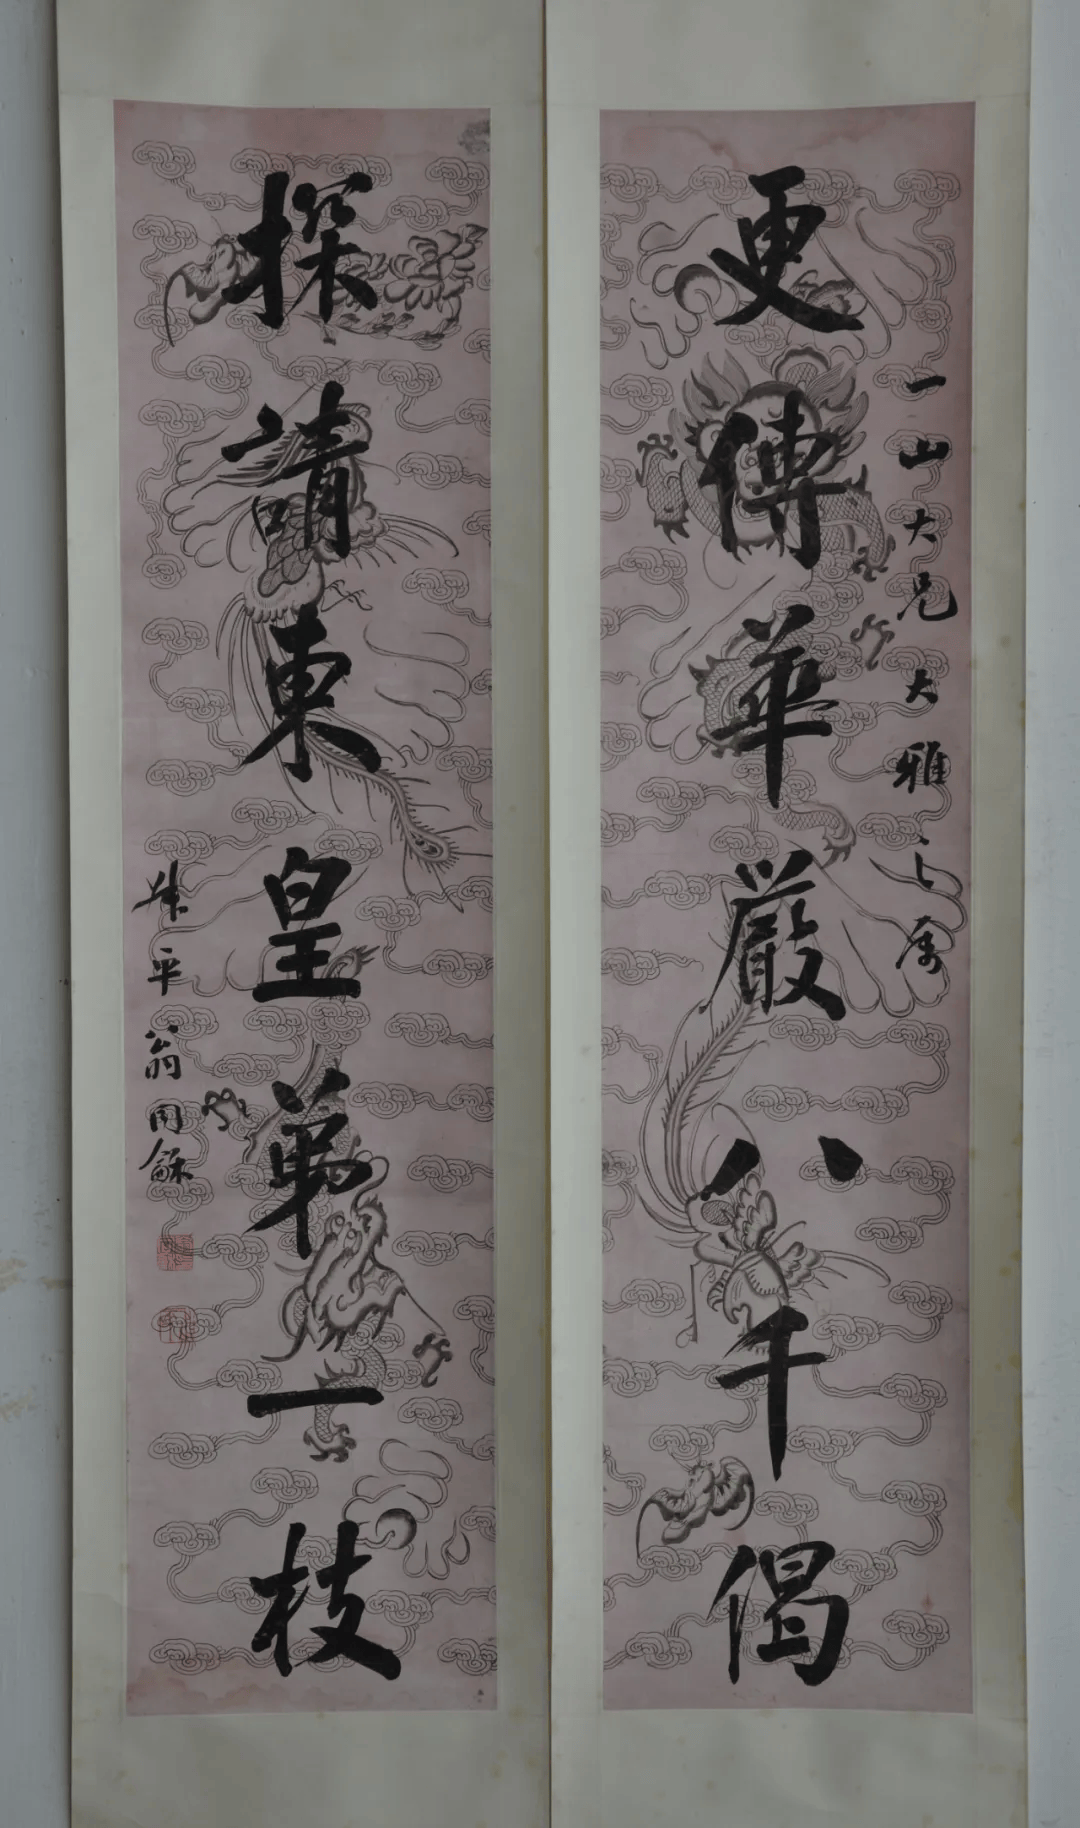 更傳華嚴八千偈
一山大兄大雅之屬
探請東皇第一枝
叔平翁同龢